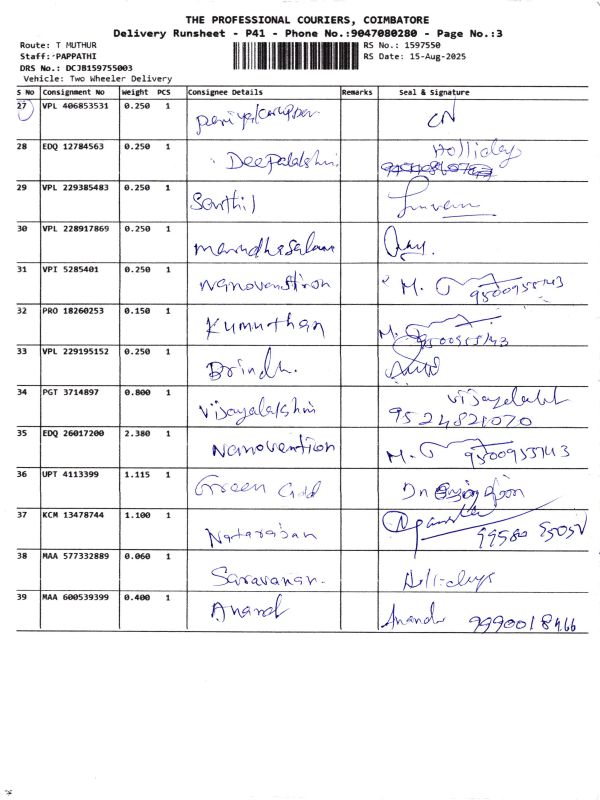 THE PROFESSIONAL COURIERS, COIMBATORE
Delivery Runsheet - P41 - Phone No.:9047080280 - Page No.:3
Route: T MUTHUR RS No.: 1597550
Staff: PAPPATHI RS Date: 15-Aug-2025
DRS No.: DCJB159755003
Vehicle: Two Wheeler Delivery
S No Consignment No Weight PCS Consignee Details Remarks Seal & Signature
27 VPL 406853531 0.250 1 CN
28 EDQ 12784563 0.250 1 Deepalakshmi Holliday
29 VPL 229385483 0.250 1 Senthil
30 VPL 228917869 0.250 1
31 VPI 5285401 0.250 1 Nanovention M. 9500955143
32 PRO 18260253 0.150 1 Kumuthan M. 9500955143
33 VPL 229195152 0.250 1 Brindh.
34 PGT 3714897 0.800 1 Vijayalakshmi
9524821070
35 EDQ 26017200 2.380 1 Nanovention M. 9500955143
36 UPT 4113399 1.115 1 Green Gold
37 KCM 13478744 1.100 1 Nataraban
38 MAA 577332889 0.060 1 Saravanan.
39 MAA 600539399 0.400 1 Anand Anand